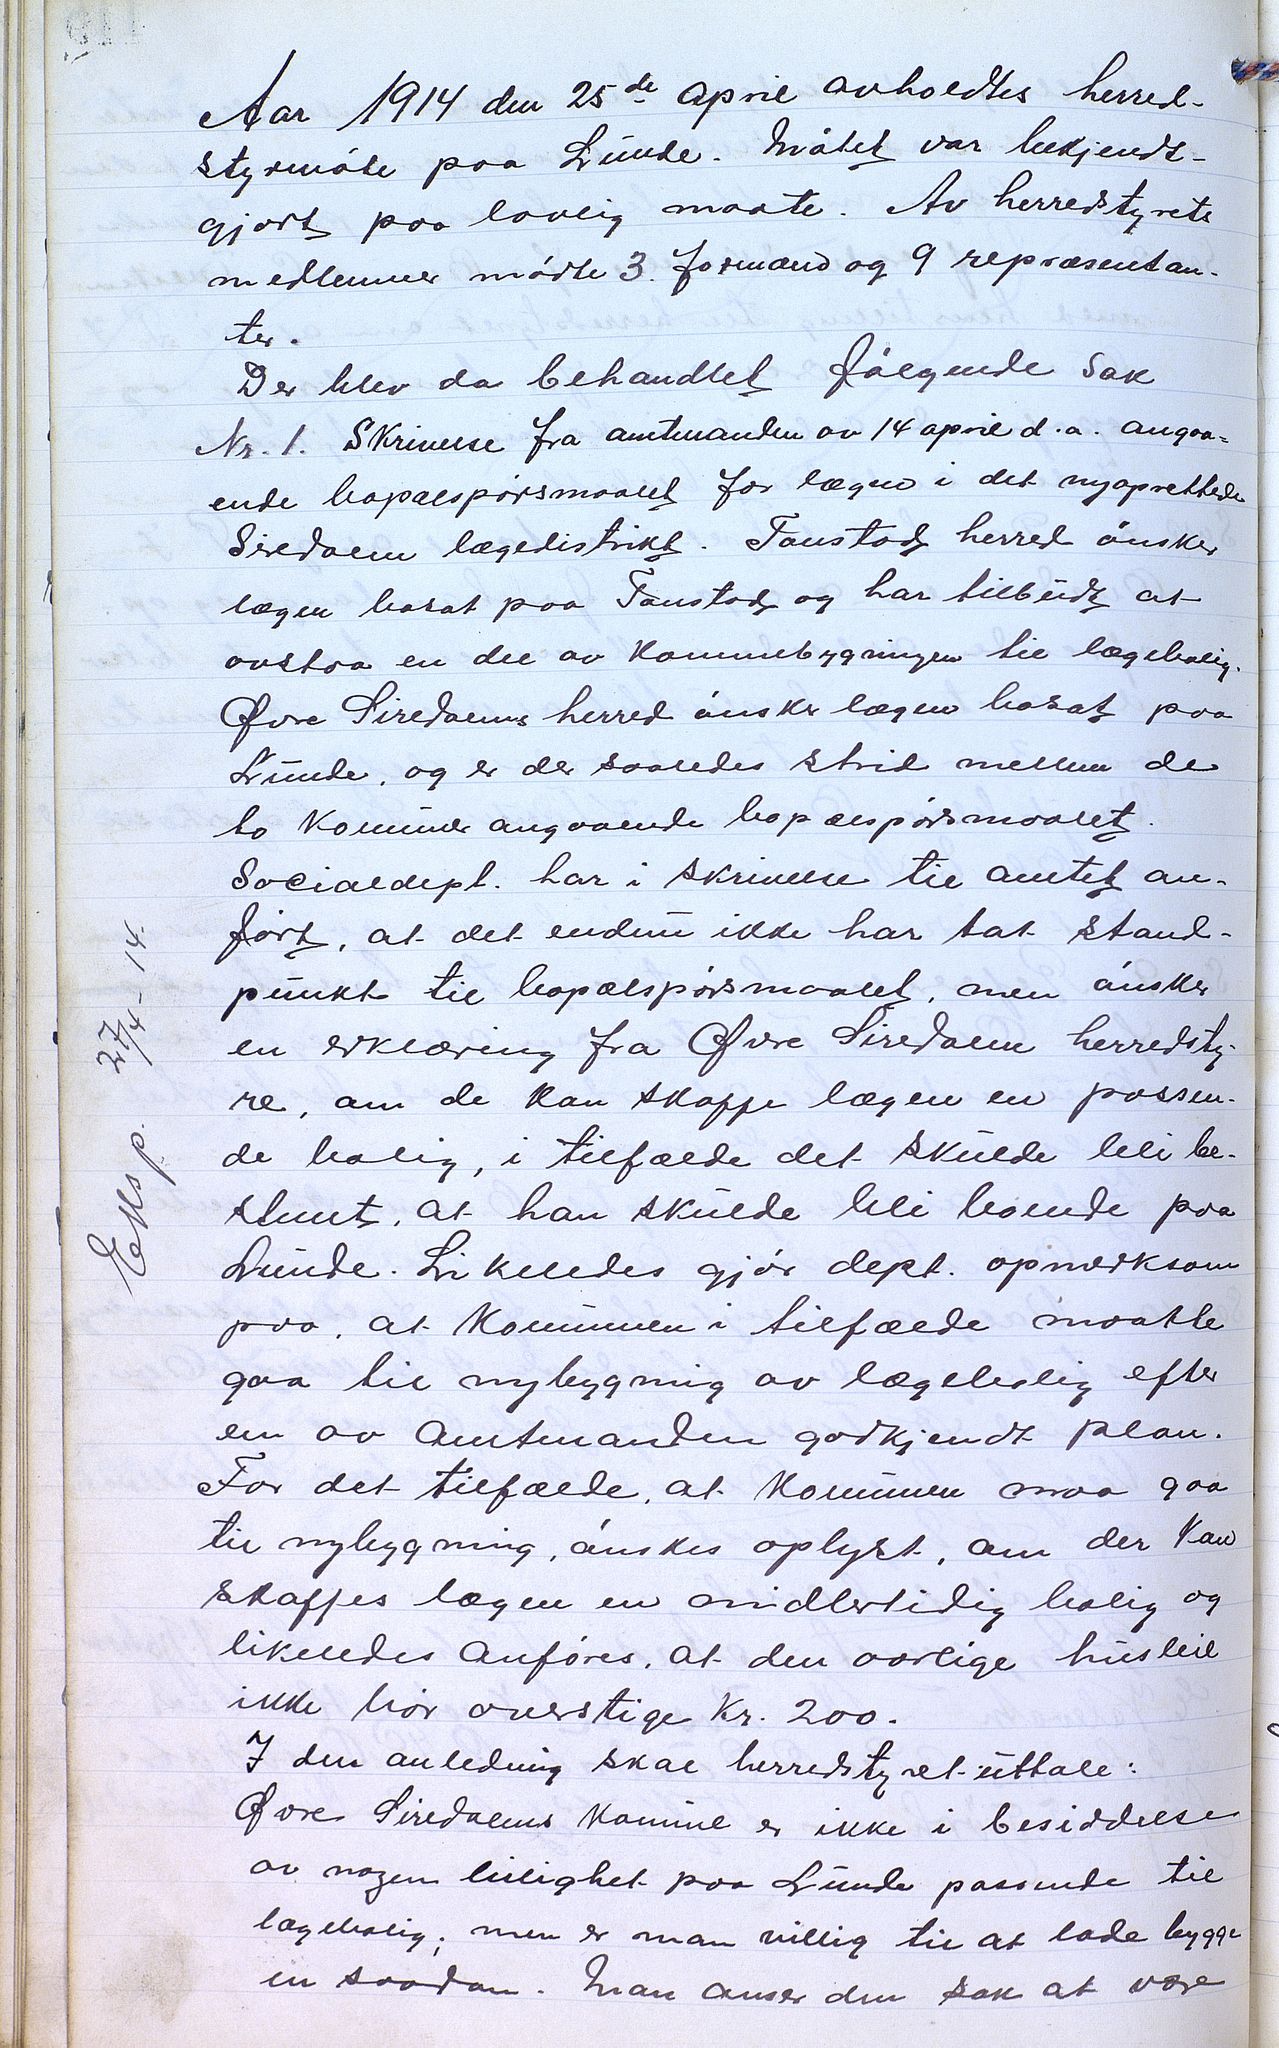 Aar 1914 den 25de april avholdtes herred-
styrmöte paa Lunde. Mötet var bekjendt-
gjort paa lovlig maate. Av herredstyrets
medlemmer mödte 3 formænd og 9 repræsentan-
ter.
Der blev da behandlet fölgende sak
Nr. 1. Skrivelse fra amtmanden av 14 april d.a. angaa-
ende bopælspörsmaalet for lægen i det nyoprettede
Siredalen lægedistrikt. Tonstad herred önsker
lægen bosat paa Tonstad og har tilbudt at
avstaa en del av kommubygningen til lægebolig.
Øvre Siredalens herred önsker lægen bosat paa
Lunde, og er der saaledes strid mellem de
to kommuner angaaende bopælspörsmaalet.
Socialdept. har i skrivelse til amtet an-
fört, at det endnu ikke har tat stand-
punkt til bopælspörsmaalet, men önsker
en erklæring fra Øvre Siredalen herredsty-
re, om de kan skaffe lægen en passen-
de bolig, i tilfælde det skulde bli be-
stemt, at han skulde bli boende paa
Lunde. Likeledes gjör dept. opmerksom
paa, at kommunen i tilfælde maatte
gaa til nybygning av lægebolig efter
en av amtmanden godkjendt plan.
For det tilfælde, at kommunen maa gaa
til nybygning, önskes oplyst, om der kan
skaffes lægen en midlertidig bolig og
likeledes anföres, at den aarlige husleie
ikke bör overstige kr. 200.
I den anledning skal herredstyret uttale:
Øvre Siredalens komune er ikke i besiddelse
av nogen leilighet paa Lunde passende til
lægebolig; men er man villig til at lade bygge
en saadan. Man anser den sak at være
Eksp. 27/4 - 14.